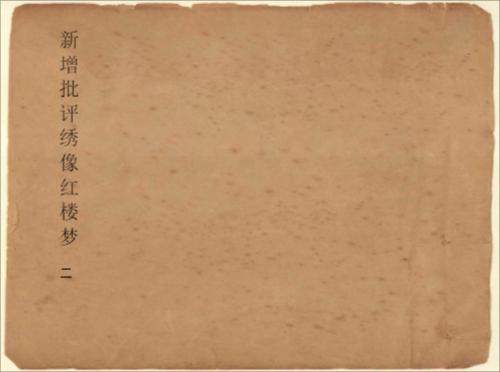 新增批评绣像红楼梦 二